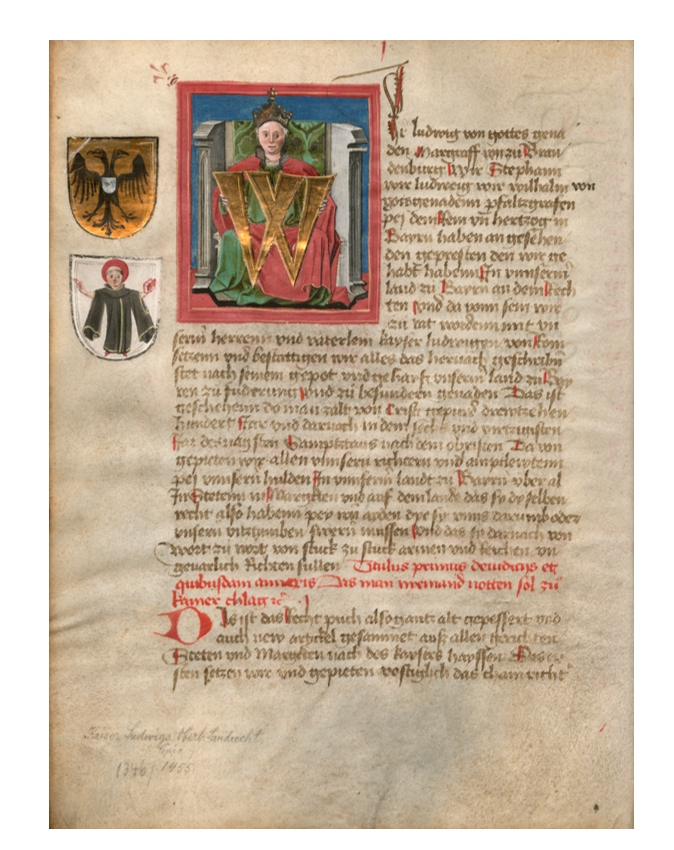 W
ir ludwig von gottes gena
den Margraff von zu Bran
denburg Wir Stephann
wir ludweig wir wilhalm von
gotsgenadenn pfaltzgrafen
pei dem Rein vnd hertzog in
Bayrn haben an gesehen
den gepresten den wir ge
habt habenn Inn vnnserm
land zu Bayrn an dem Rech
ten Vnd da vonn sein wir
zu rat wordenn mit vn
serm herrenn vnd vaterlem kayser ludwigen von Rom
setzenn vnd bestattigen wir alles das hernach geschribn
stet nach seinem gepot vnd gehaiß vnserm land zu Bay
ren zu fuderung Vnd zu besundern genaden Das ist
geschehenn do man zalt von Crist gepurd drewtzehen
hundert Jar vnd darnach in dem sechs vnd virtzigisten
Jar des nagsten Samptztags nach dem obristen Da von
gepieten wir allen vnnsern richtern vnd amptlewtenn
pei vnnsern hulden In vnnserm landt zu Bayrn vber al
In Steten in Margkten vnd auf dem lande das sy dyselben
recht also habenn pey irn ayden dye sy vnns darumb oder
vnsern vitztumben swern mussen Vnd das sy darnach von
wort zu wort von stuck zu stuck armen vnd reichen vn
geuarlich Richten sullen Titulus primus de iudicijs et
quibusdam annexis Das man niemand notten sol zu
kainer chlag
Dis ist das Recht puch also gantz alt gepessert vnd
auch new artickel gesammet auß allen Gerichten
Steten vnd Margkten nach des kaysers hayssen Das er
sten setzen wir vnd gepieten vestiglich das chain richter
Kaiser Ludwigs Oberb. Landrecht
(1346) 1455